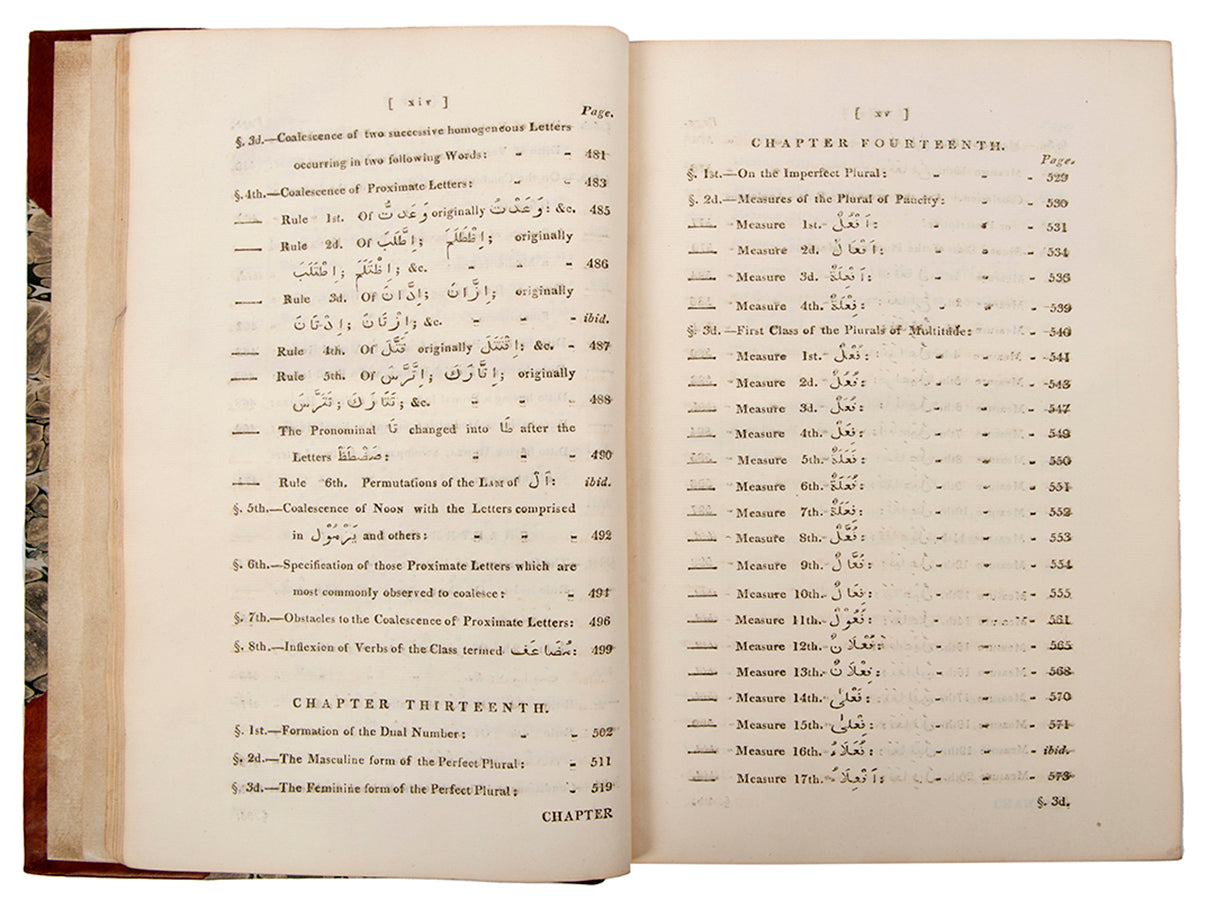 [ xiv ]
Page.
§. 3d.—Coalescence of two successive homogeneous Letters
occurring in two following Words: - - 481
§. 4th.—Coalescence of Proximate Letters: - - 483
—— Rule 1st. Of وَعَدتُّ originally وَعَدْتُ: &c. 485
—— Rule 2d. Of اِطَّلَبَ; اِظَّلَمَ; originally
اِطْتَلَبَ; اِظْتَلَمَ; &c. - - - 486
—— Rule 3d. Of اِدَّانَ; اِزَّانَ; originally
اِدْتَانَ; اِزْتَانَ; &c. - - - ibid.
—— Rule 4th. Of قَتَّلَ originally اِقْتَتَلَ: &c. - 487
—— Rule 5th. Of اِتَّرَّسَ; اِتَّارَكَ; originally
تَتَرَّسَ; تَتَارَكَ; &c. - - - 488
—— The Pronominal تَا changed into طَا after the
Letters صَضْطَظَ: - - - 490
—— Rule 6th. Permutations of the LAM of اَلْ: ibid.
§. 5th.—Coalescence of NOON with the Letters comprised
in يَرْمُوْلُ and others: - - - 492
§. 6th.—Specification of those Proximate Letters which are
most commonly observed to coalesce: - 494
§. 7th.—Obstacles to the Coalescence of Proximate Letters: 496
§. 8th.—Inflexion of Verbs of the Class termed مُضَاعَف: 499
CHAPTER THIRTEENTH.
§. 1st.—Formation of the Dual Number: - - 502
§. 2d.—The Masculine form of the Perfect Plural: - 511
§. 3d.—The Feminine form of the Perfect Plural: - 519
CHAPTER
[ xv ]
CHAPTER FOURTEENTH.
Page.
§. 1st.—On the Imperfect Plural: - - - 529
§. 2d.—Measures of the Plural of Paucity: - - 530
—— Measure 1st. اَفْعُلٌ: - - - 531
—— Measure 2d. اَفْعَالٌ: - - - 534
—— Measure 3d. اَفْعِلَةٌ: - - - 536
—— Measure 4th. فِعْلَةٌ: - - - 539
§. 3d.—First Class of the Plurals of Multitude: - 540
—— Measure 1st. فُعْلٌ: - - - 541
—— Measure 2d. فُعُلٌ: - - - 543
—— Measure 3d. فُعَلٌ: - - - 547
—— Measure 4th. فِعَلٌ: - - - 549
—— Measure 5th. فَعَلَةٌ: - - - 550
—— Measure 6th. فُعَلَةٌ: - - - 551
—— Measure 7th. فِعَلَةٌ: - - - 552
—— Measure 8th. فُعَّلٌ: - - - 553
—— Measure 9th. فُعَّالٌ: - - - 554
—— Measure 10th. فِعَالٌ: - - - 555
—— Measure 11th. فُعُوْلٌ: - - - 561
—— Measure 12th. فُعْلَانٌ: - - - 565
—— Measure 13th. فِعْلَانٌ: - - - 568
—— Measure 14th. فَعْلىٰ: - - - 570
—— Measure 15th. فِعْلىٰ: - - - 571
—— Measure 16th. فُعَلَاءُ: - - - ibid.
—— Measure 17th. اَفْعِلَاءُ: - - - 573
§. 3d.